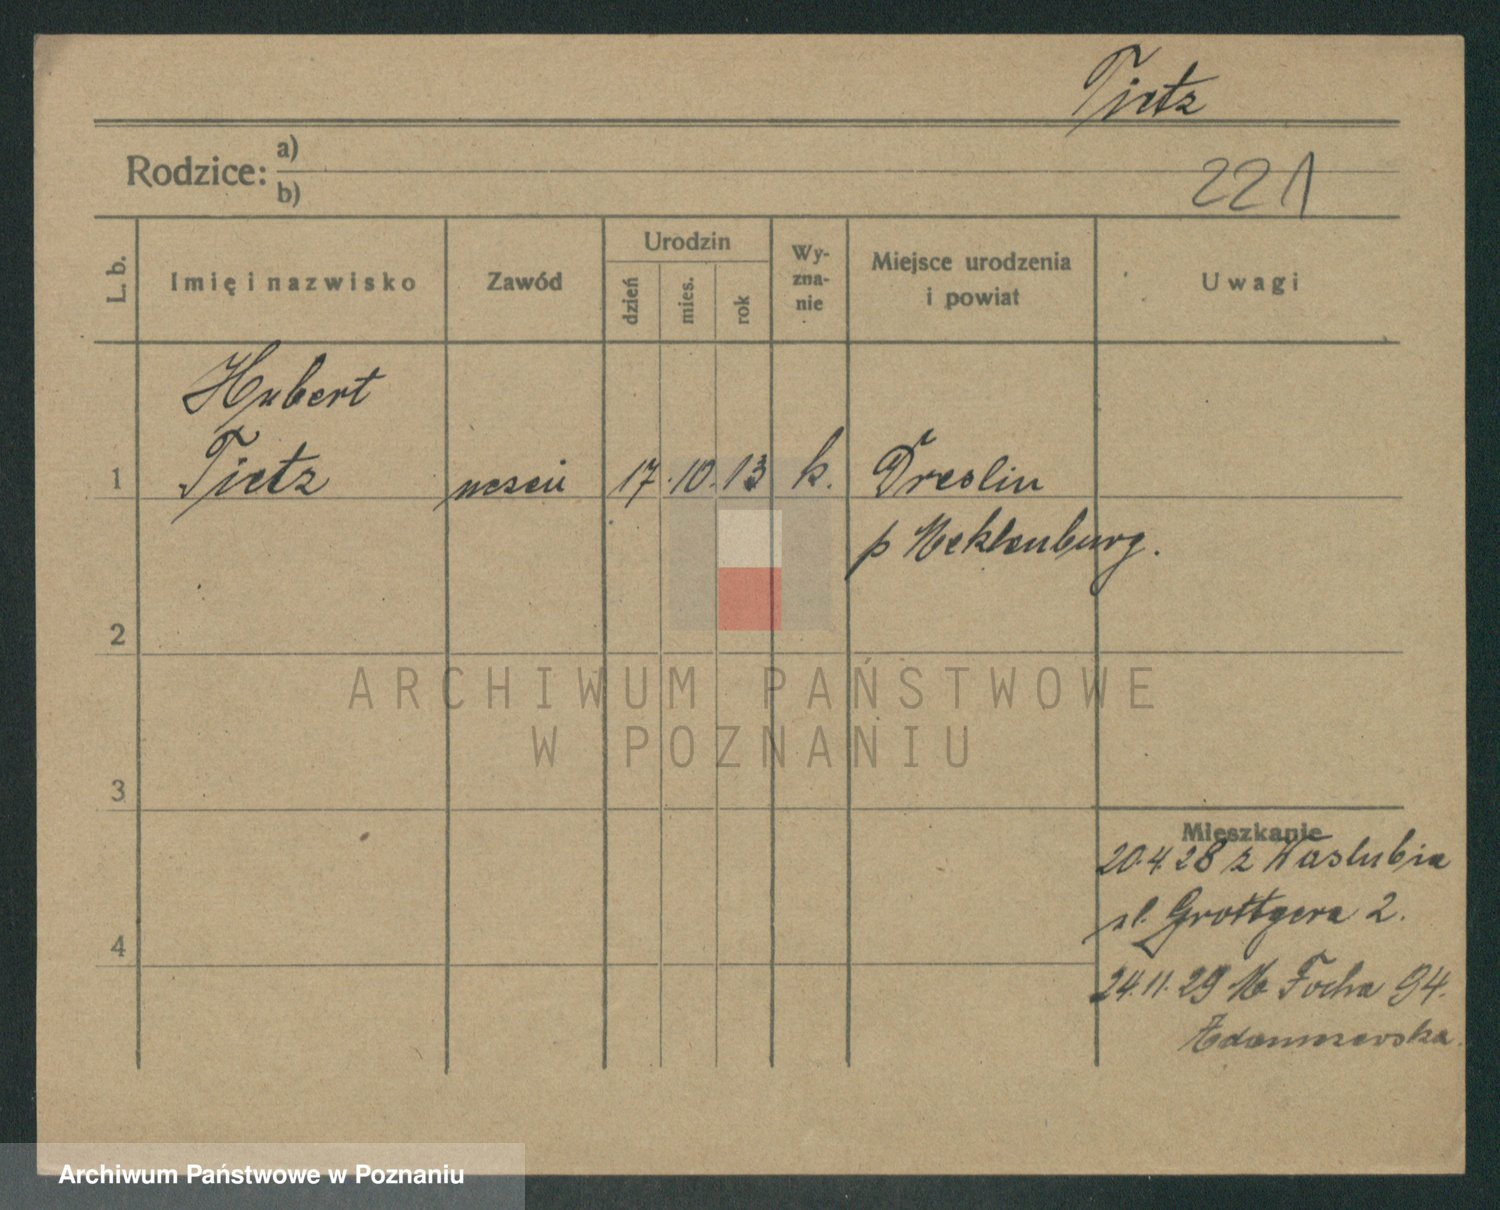 Tietz
Rodzice: a)
b)
221
L. b.
Imię i nazwisko
Zawód
Urodzin
dzień
mies.
rok
Wy-
zna-
nie
Miejsce urodzenia
i powiat
Uwagi
Hubert
1 Tietz uczeń 17. 10. 13 k. Dreslin
p Meklenburg.
2
ARCHIWUM PAŃSTWOWE
W POZNANIU
3
Mieszkanie
20.4.28 z
ul. Grottgera 2.
4
24.11.29 M Focha 94.
Archiwum Państwowe w Poznaniu